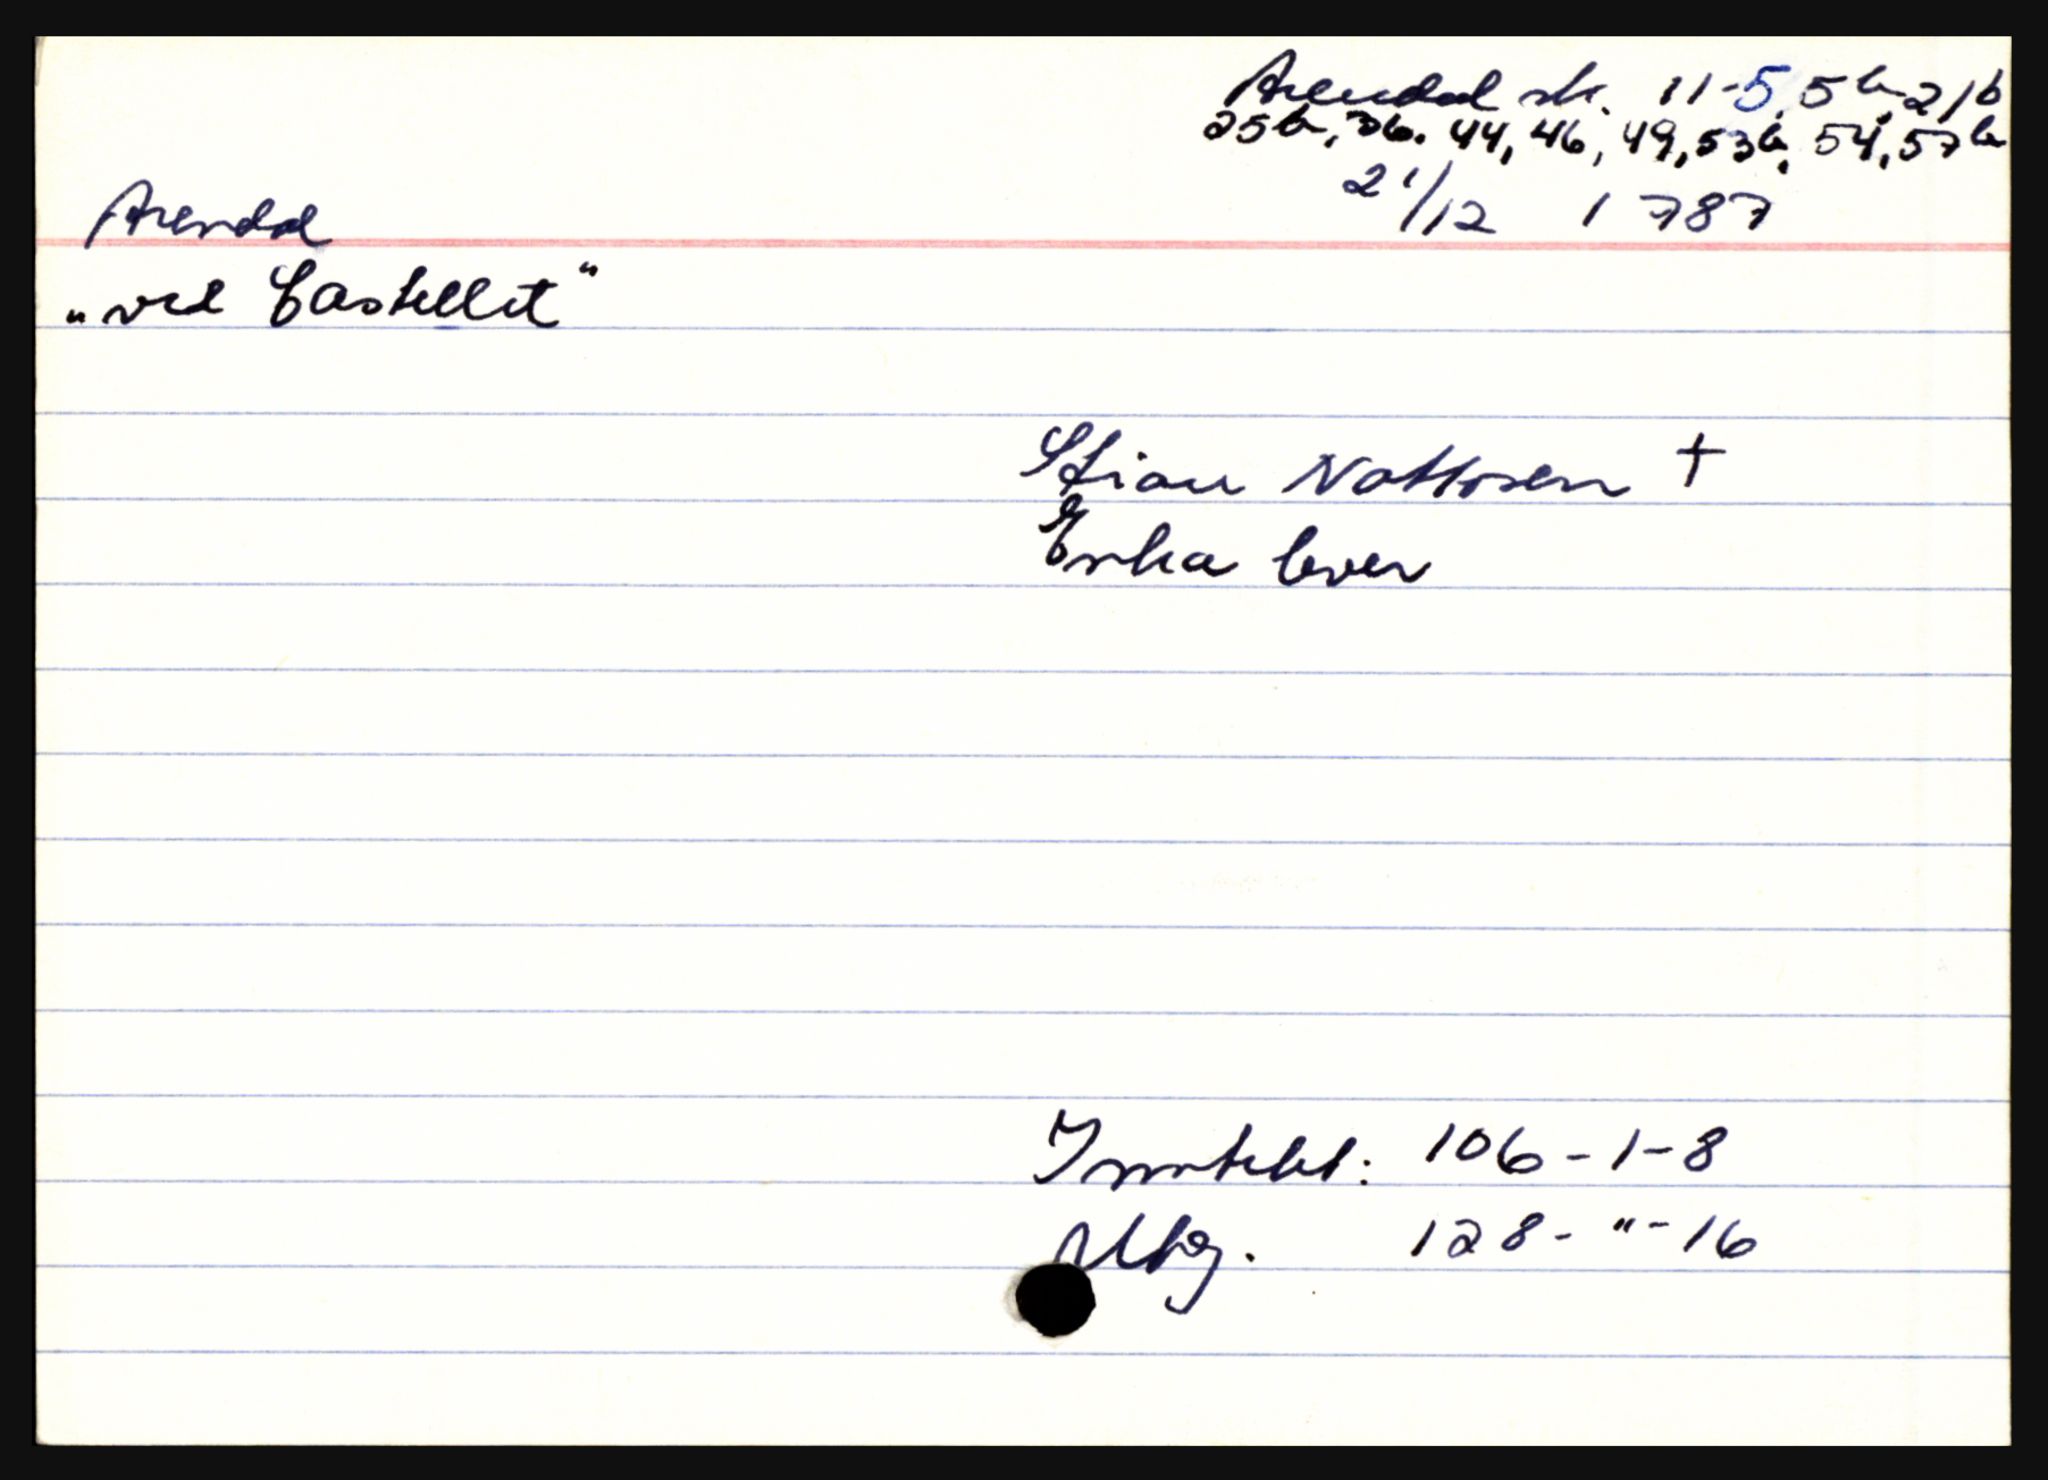 Arendal sk. 11-5, 5b, 21b
25b, 36. 44, 46, 49, 53b, 54, 57b
21/12 1787
Arendal
„ved Castellet“
Stian Nattosen †
Enka lever
Inntekt: 106-1-8
Utg. 128-"-16